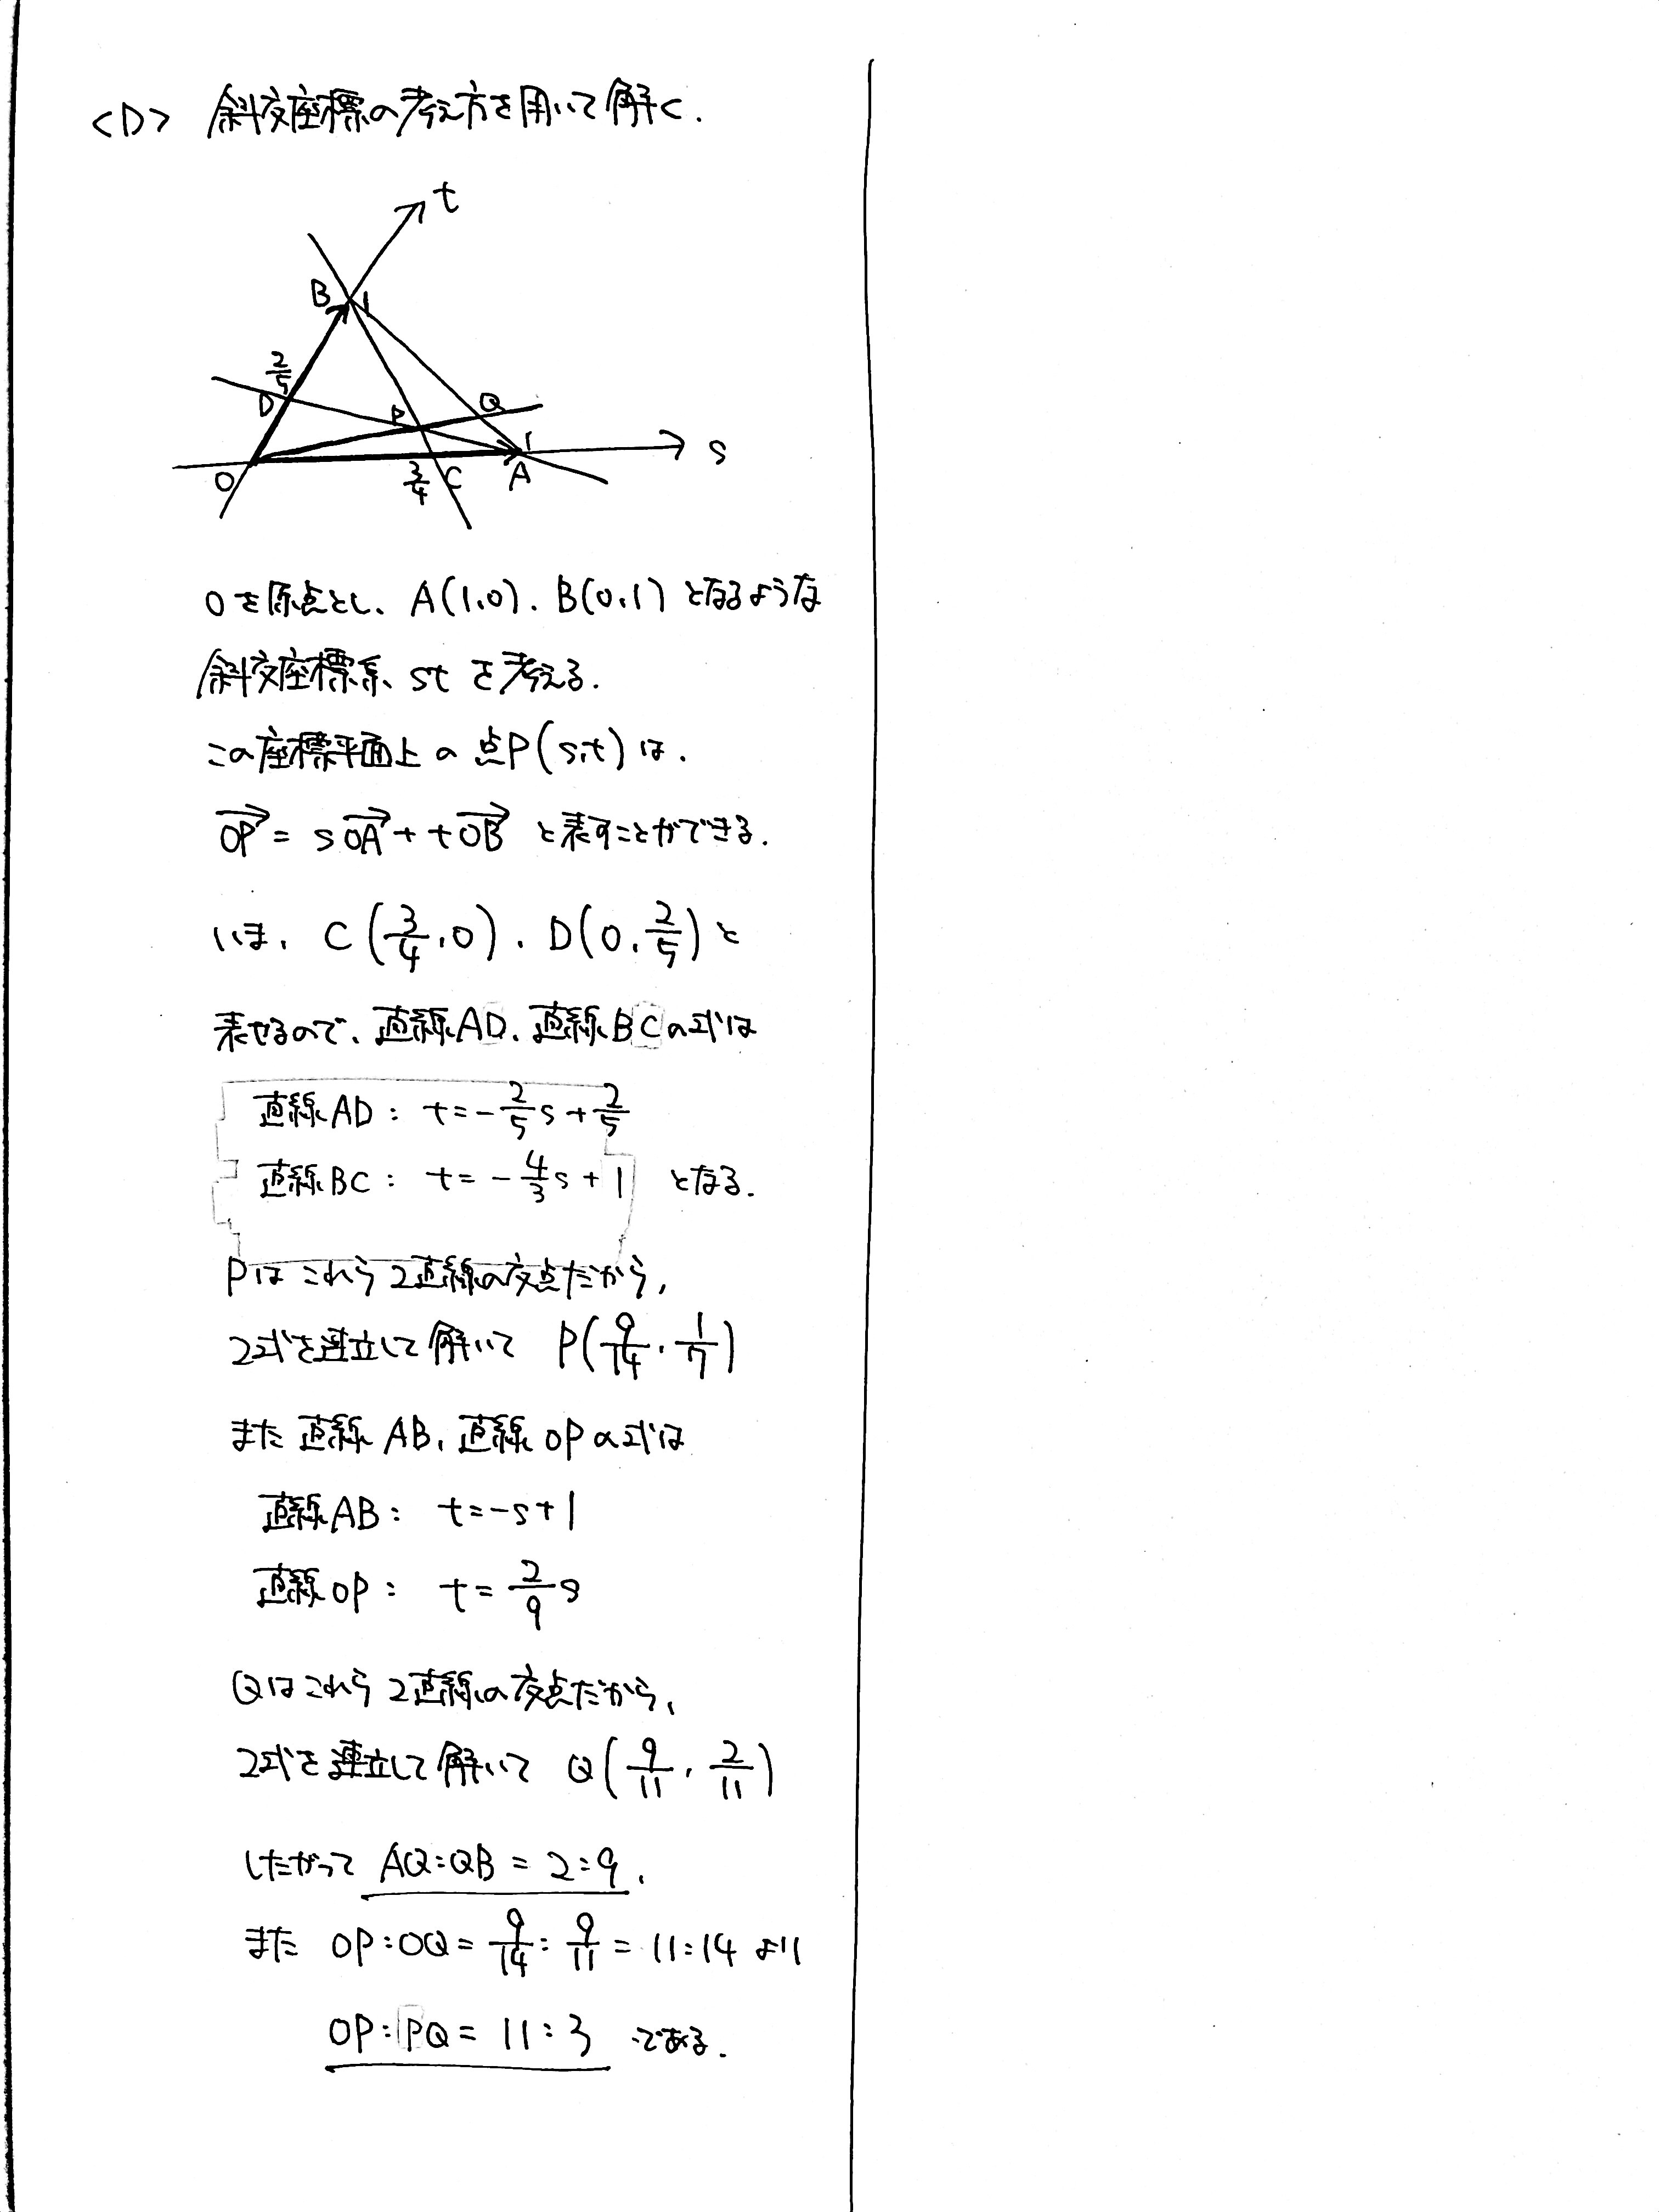 <D> 斜交座標の考え方を用いて解く.
t
B 1
2/5
D
P
Q
1
s
O
3/4
C
A
Oを原点とし、A(1,0), B(0,1) となるような
斜交座標系、st を考える.
この座標平面上の点P(s,t)は,
→OP = s→OA + t→OB と表すことができる.
いま, C(3/4, 0), D(0, 2/5) と
表せるので、直線AD, 直線BCの式は
直線AD: t=-2/5s+2/5
直線BC: t=-4/3s+1 となる.
Pはこれら2直線の交点だから,
2式を連立して解いて P(9/14, 1/7)
また直線AB, 直線OPの式は
直線AB: t=-s+1
直線OP: t=2/9s
Qはこれら2直線の交点だから,
2式を連立して解いて Q(9/11, 2/11)
したがって AQ:QB = 2:9,
また OP:OQ = 9/14 : 9/11 = 11:14 より
OP:PQ = 11:3 である.